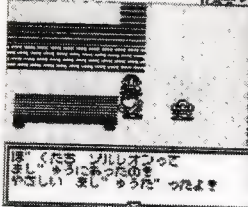 ぼくたち ソルレオンって
まじゅうにあったの
やさしい まじゅうだったよ